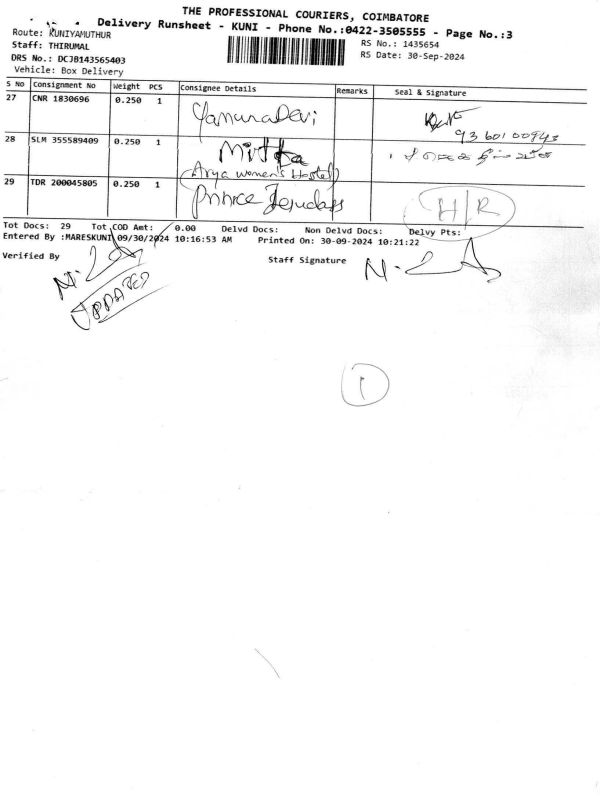 THE PROFESSIONAL COURIERS, COIMBATORE
Delivery Runsheet - KUNI - Phone No.:0422-3505555 - Page No.:3
Route: KUNIYAMUTHUR
Staff: THIRUMAL RS No.: 1435654
DRS No.: DCJB143565403 RS Date: 30-Sep-2024
Vehicle: Box Delivery
S No Consignment No Weight PCS Consignee Details Remarks Seal & Signature
27 CNR 1830696 0.250 1 Yamuna Devi
93 601 00943
28 SLM 355589409 0.250 1
(Arya women's Hostel)
29 TDR 200045805 0.250 1 Prince H/R
Tot Docs: 29 Tot COD Amt: 0.00 Delvd Docs: Non Delvd Docs: Delvy Pts:
Entered By :MARESKUNI 09/30/2024 10:16:53 AM Printed On: 30-09-2024 10:21:22
Verified By Staff Signature
UPDATED
1